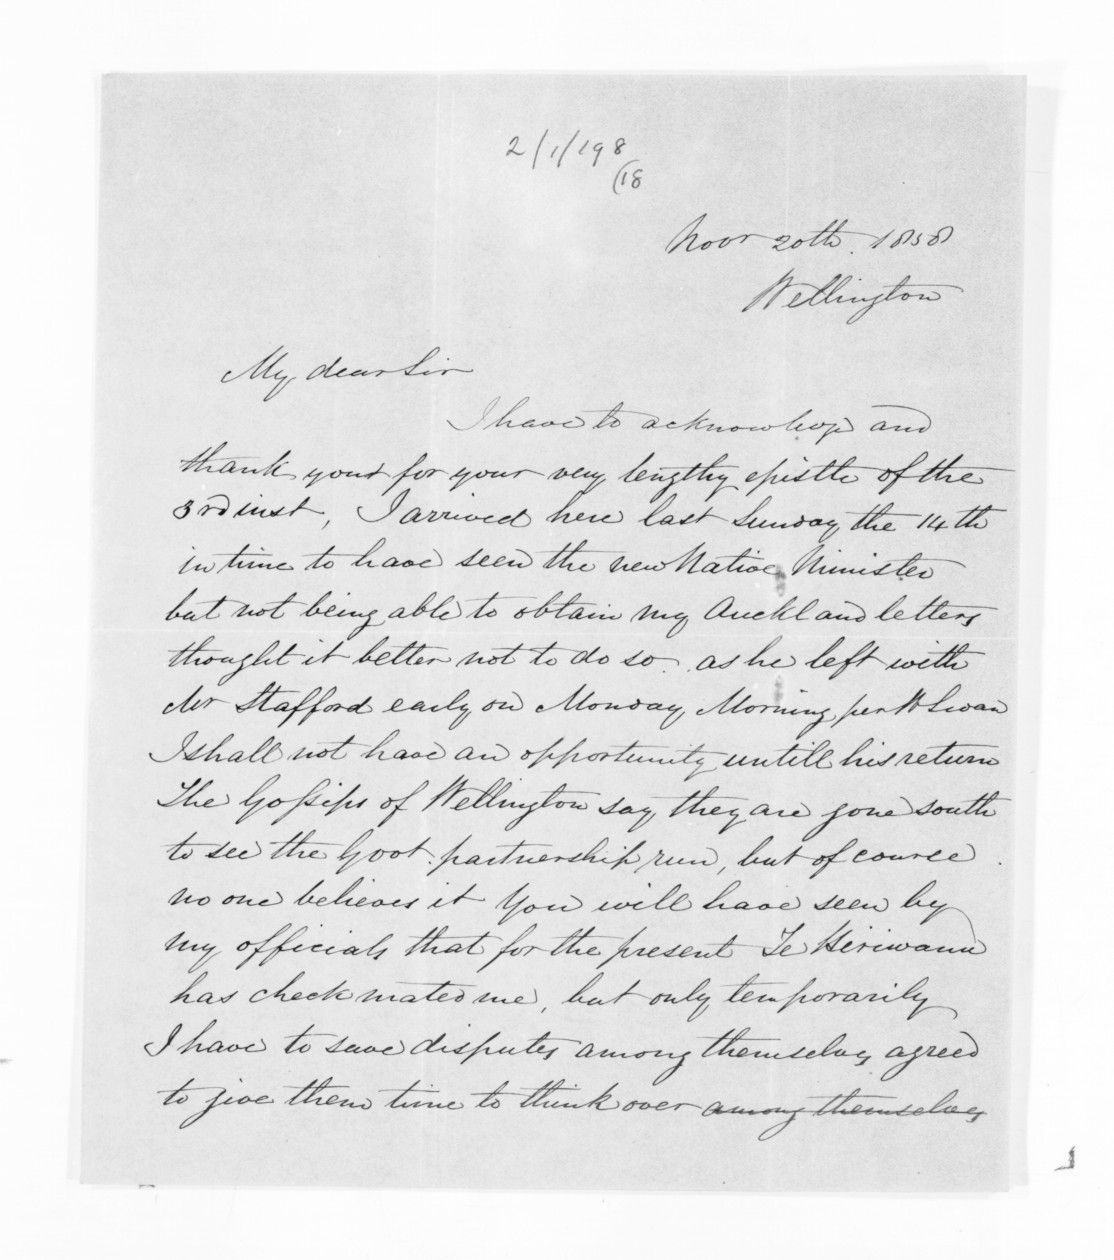 2/1/198
(18
Novr 20th. 1858
Wellington
My dear Sir
I have to acknowlege and
thank your for your very lengthy epistle of the
3rd inst, I arrived here last Sunday the 14th
in time to have seen the new Native Minister
but not being able to obtain my Auckland letters
thought it better not to do so. as he left with
Mr Stafford early on Monday Morning per W Swan
I shall not have an opportunity untill his return
The Gossips of Wellington say they are gone south
to see the Govt. partnership run, but of course
no one believes it You will have seen by
my officials that for the present Te Hiriwanu
has check mated me, but only temporarily
I have to save disputes among themselves agreed
to give them time to think over among themselves